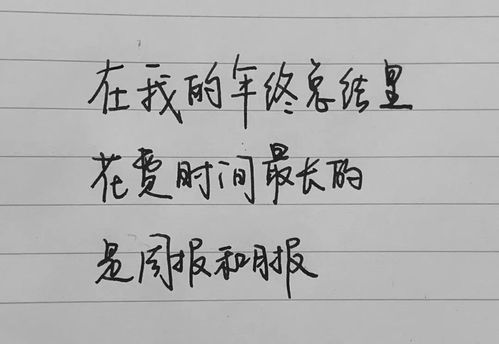 在我的年终总结里
花费时间最长的
是周报和月报